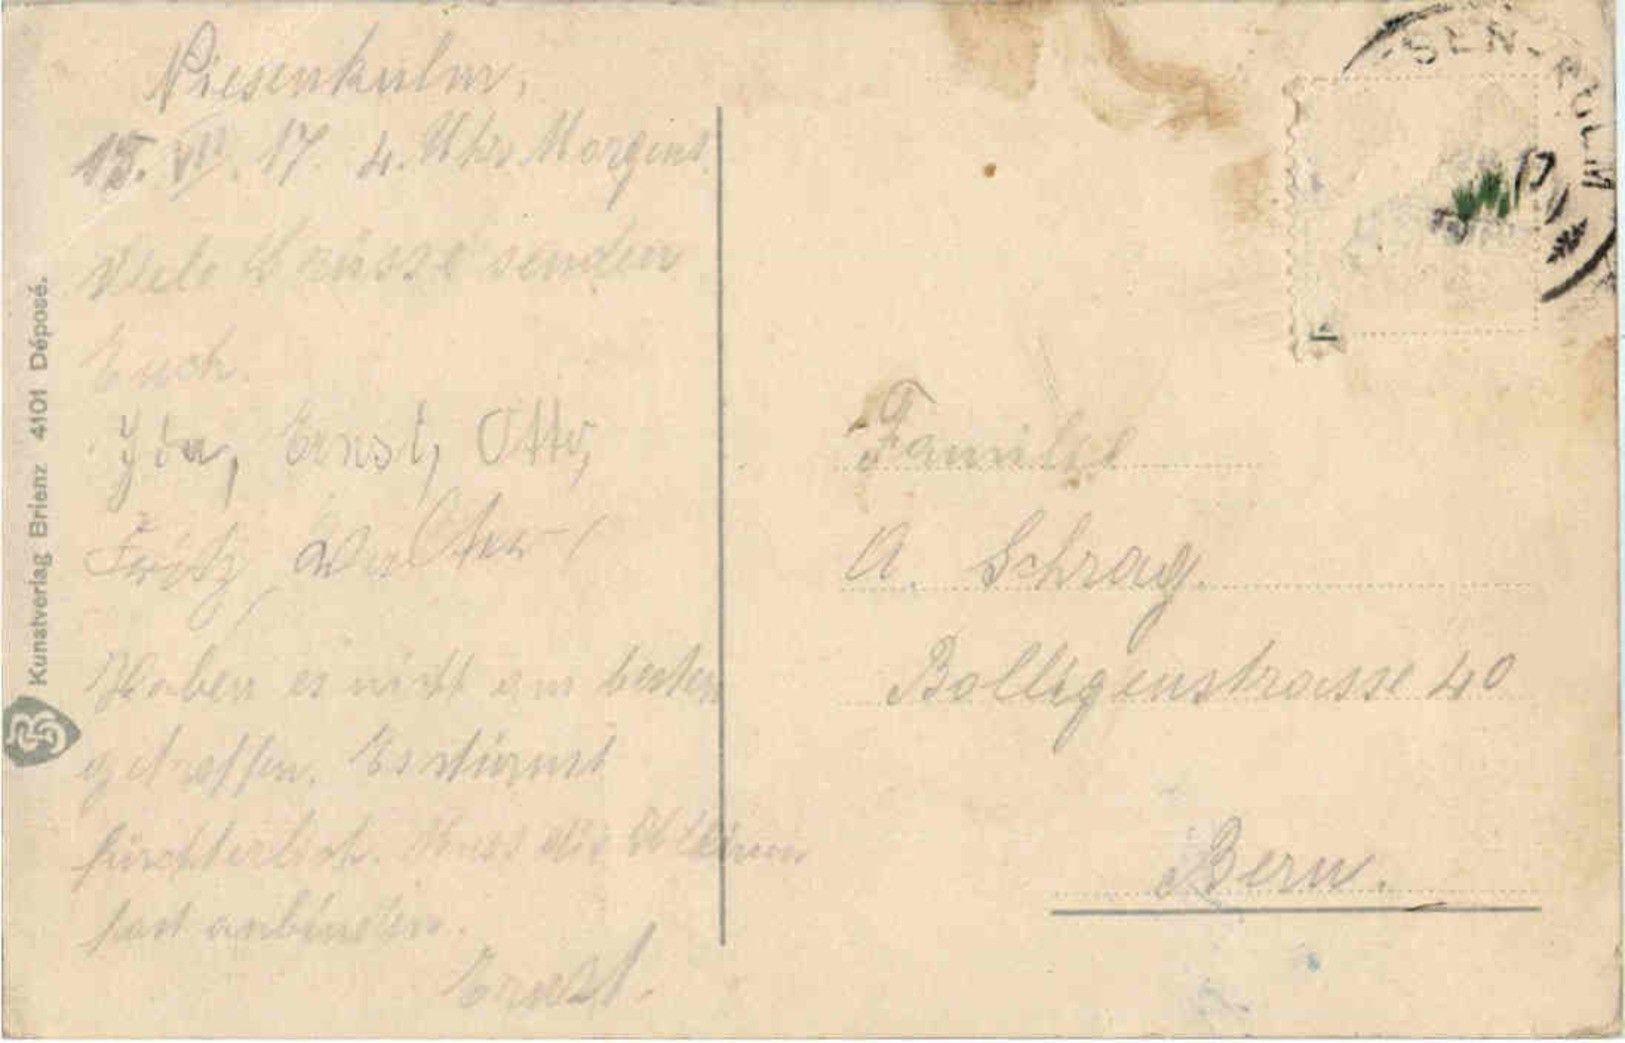 Niesenkulm,
15. VII. 17 4. Uhr Morgens.
Viele Grüsse senden
Euch.
Ida, Ernst, Otto,
Fritz, Walter
Haben es nicht am besten
getroffen. Es stürmt
fürchterlich. Muss die
fast anbinden.
Ernst.
Kunstverlag Brienz 4101 Déposé.
SEN-KULM
Familie
A. Schrag.
Bolligenstrasse 40
Bern.